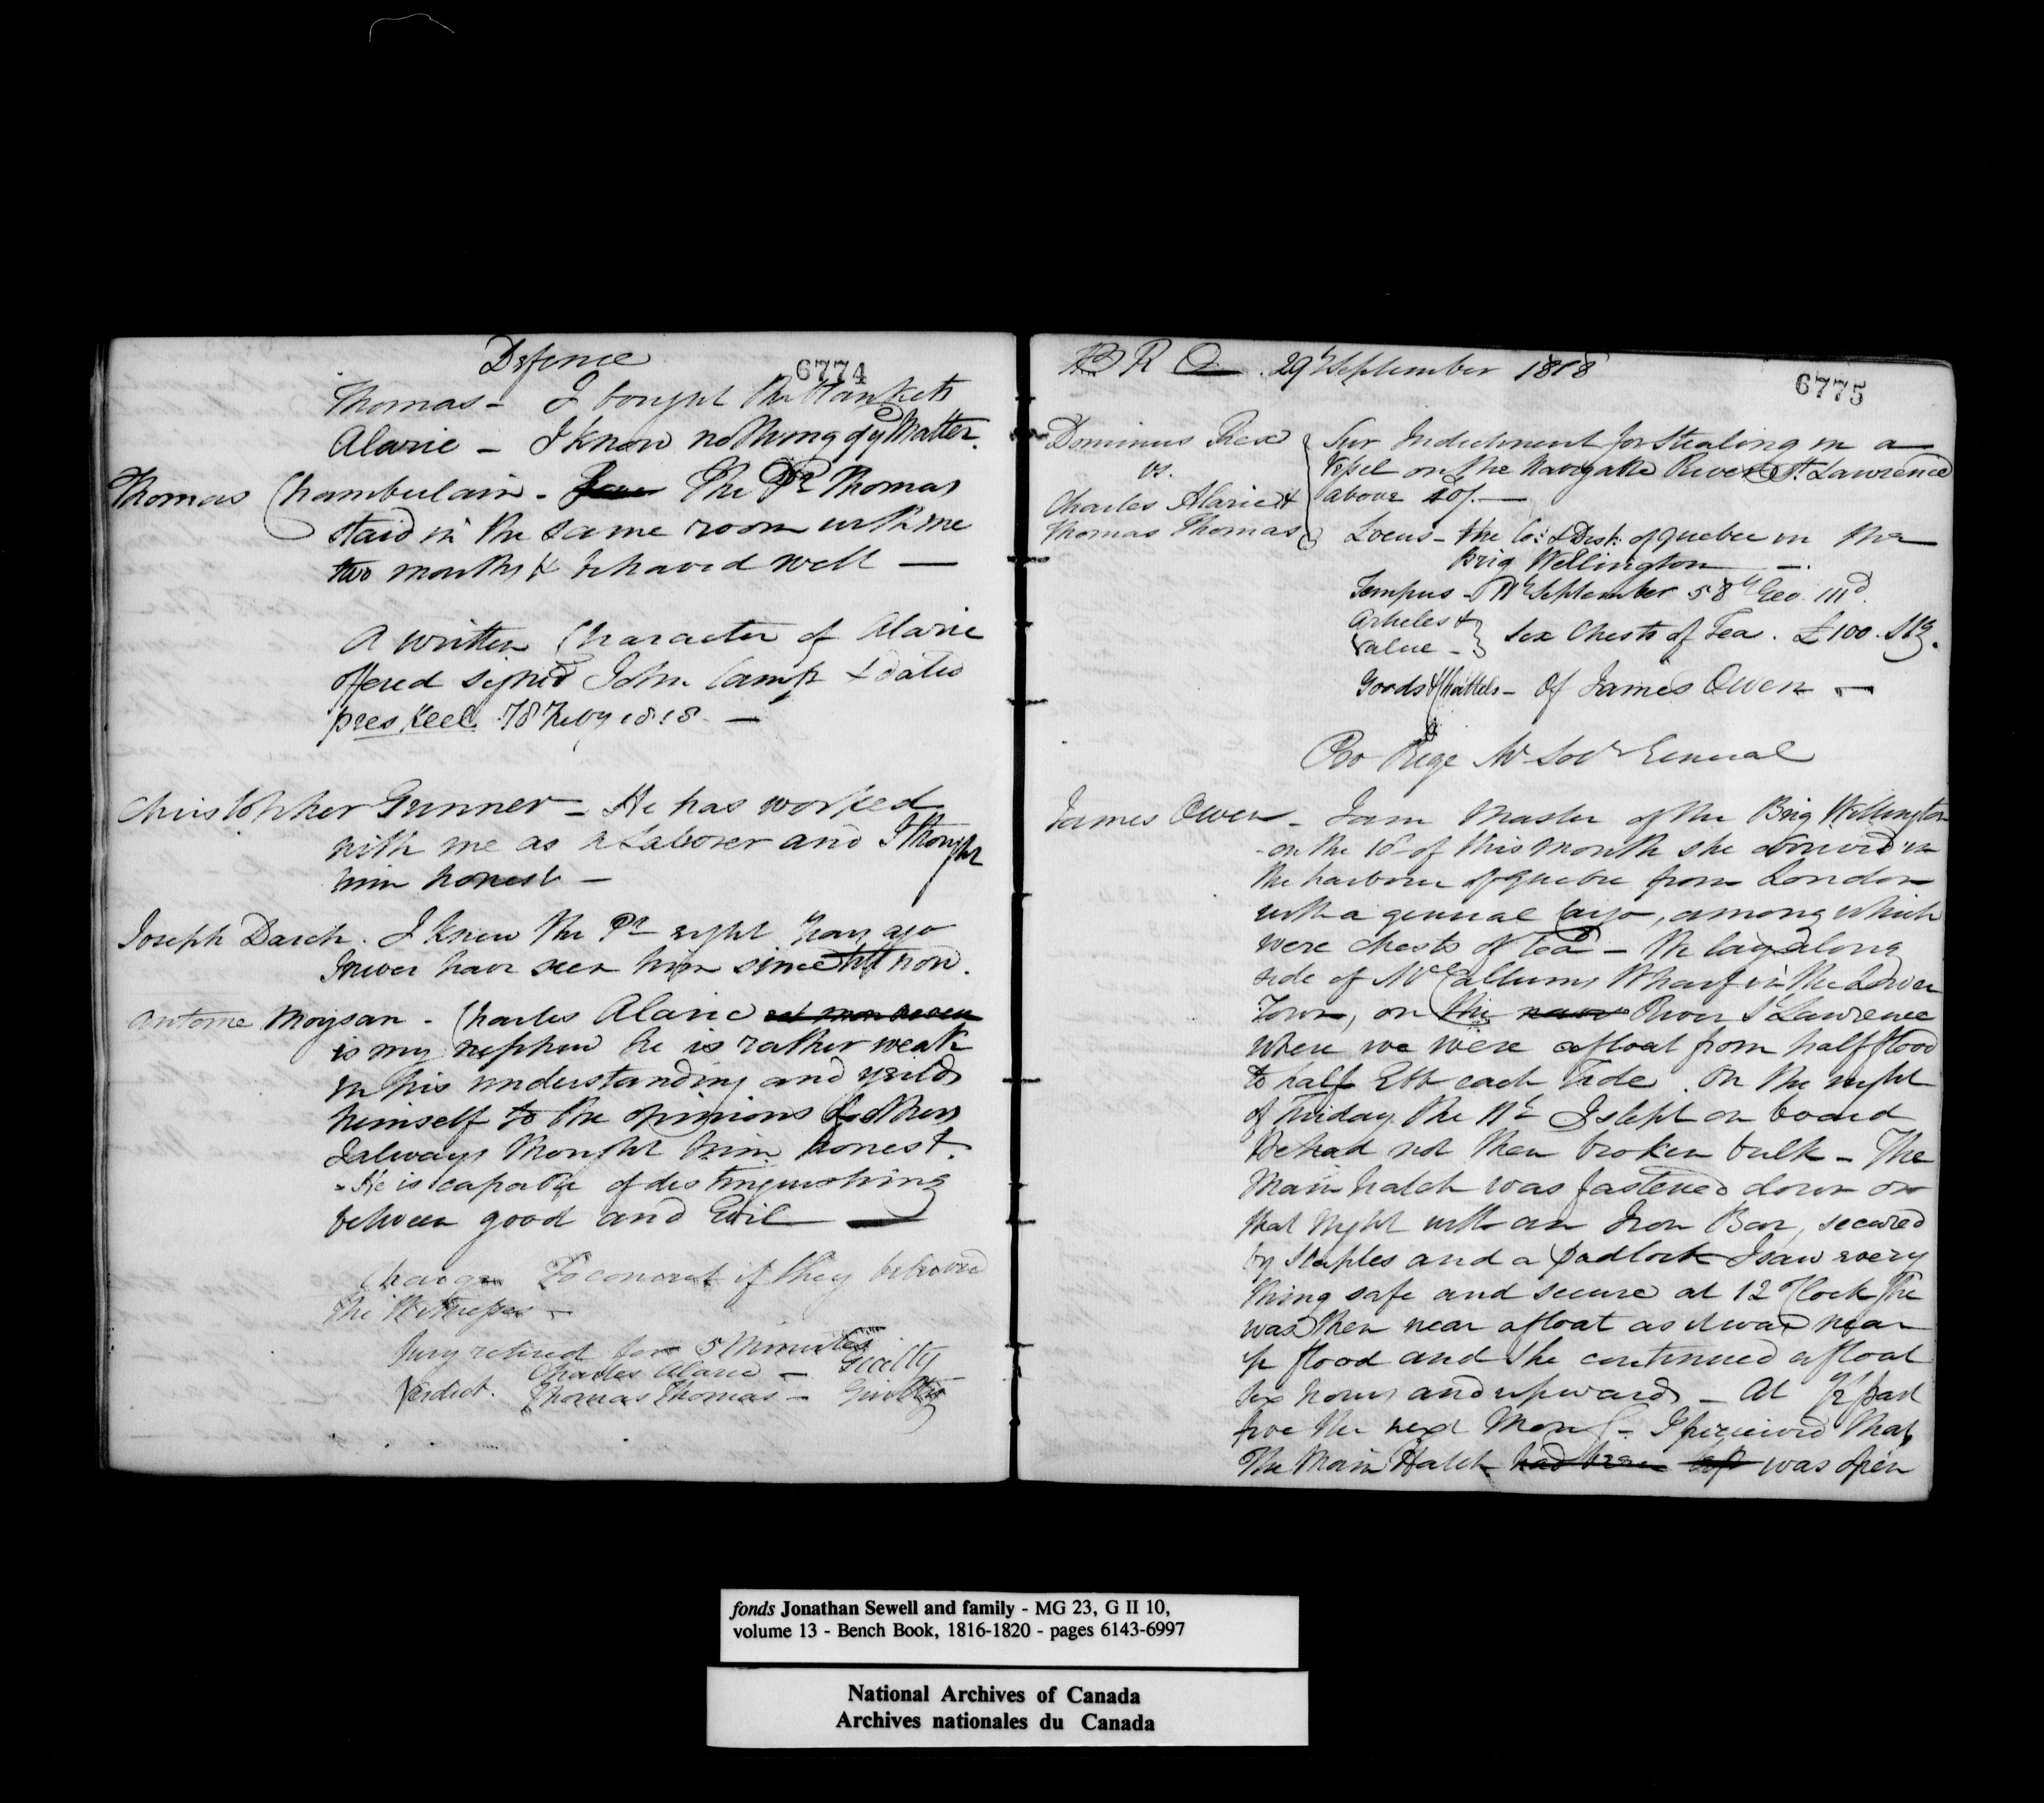 Defence
6774
Thomas - I bought the blankets
Alarie - I know nothing of ye Matter.
Thomas Chamberlain - The Pr Thomas
staid in the same room with me
two months & behaved well —
A written Character of Alarie
offered signed John Camp & dated
78 Feby 1818. —
Christopher Gunner - He has worked
with me as a Laborer and I thought
him honest —
Joseph Darch. I knew the Pr eight years ago
I never have seen him since till now.
Antoine Moysan - Charles Alarie
is my nephew he is rather weak
in his understanding and yeilds
himself to the opinions of others
I always thought him honest.
- He is capable of distinguishing
between good and Evil —
Charge To convict if they believed
the Witnesses —
Jury retired for 5 Minutes
Charles Alarie - Guilty
Verdict. Thomas Thomas - Guilty
B R Q 29h September 1818
6775
Dominus Rex
vs.
Charles Alarie &
Thomas Thomas
Sur Indictment for Stealing in a
Vessel on the Navigable River St. Lawrence
above 40/. —
Locus - the Co: & Dist: of Quebec in the
Brig Wellington —.
Tempus - 11h September 58h Geo. IIId.
Articles &
Value - } Six Chests of Tea. £100. Stg.
Goods & Chattels - Of James Owen —
Pro Rege Mr Solr General
James Owen - I am Master of the Brig Wellington
- on the 10h of this month she arrived in
the harbour of Quebec from London
with a general Cargo, among which
were chests of Tea - She lay along
side of McCallums Wharf in the Lower
Town, on the River St Lawrence
where we were afloat from half flood
to half Ebb each Tide. On the night
of Friday the 11h I slept on board
We had not then broken bulk - The
Main hatch was fastened down on
that Night with an Iron Bar, secured
by Staples and a padlock I saw every
thing safe and secure at 12 OClock She
was then near afloat as it was near
1/2 flood and she continued afloat
six hours and upwards - At 1/2 past
five the next Morng - I perceived that
the Main Hatch had been was open
fonds Jonathan Sewell and family - MG 23, G II 10,
volume 13 - Bench Book, 1816-1820 - pages 6143-6997
National Archives of Canada
Archives nationales du Canada